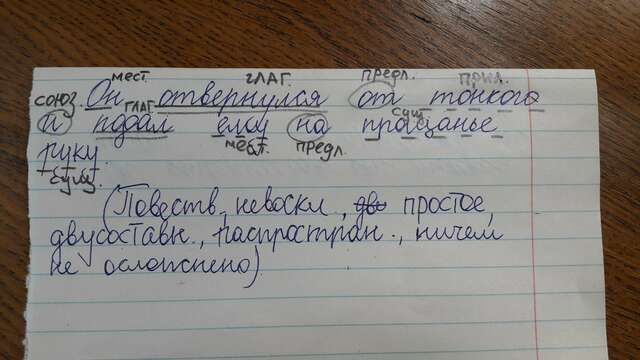 мест. ГЛАГ. предл. прил.
союз. Он отвернулся от тонкого
ГЛАГ сущ.
и подал ему на прощанье
мест. предл.
руку.
сущ.
(Повеств., невоскл., простое,
двусоставн., распростран., ничем
не осложнено)